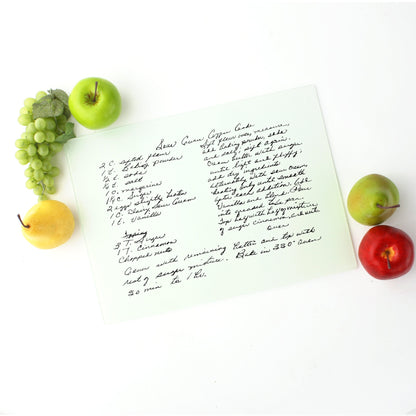 Sour Cream Coffee Cake
2 C. sifted flour
1 t. baking powder
½ t. soda
½ t. salt
1 C. margarine
2 eggs slightly beaten
1 C. Dairy Sour Cream
1 t. Vanilla
Topping
3 T. Sugar
1 T. Cinnamon
Chopped nuts
Sift flour once, measure,
add baking powder, soda
and salt, sift again.
Cream butter with sugar
until light and fluffy,
add dry ingredients
alternately with sour cream
beating only until smooth
after each addition. Add
Vanilla and
into greased tube pan.
Top half with half mixture
of sugar cinnamon
over
Cover with remaining batter and top with
rest of sugar mixture. Bake in 350° oven
50 min to 1 hr.